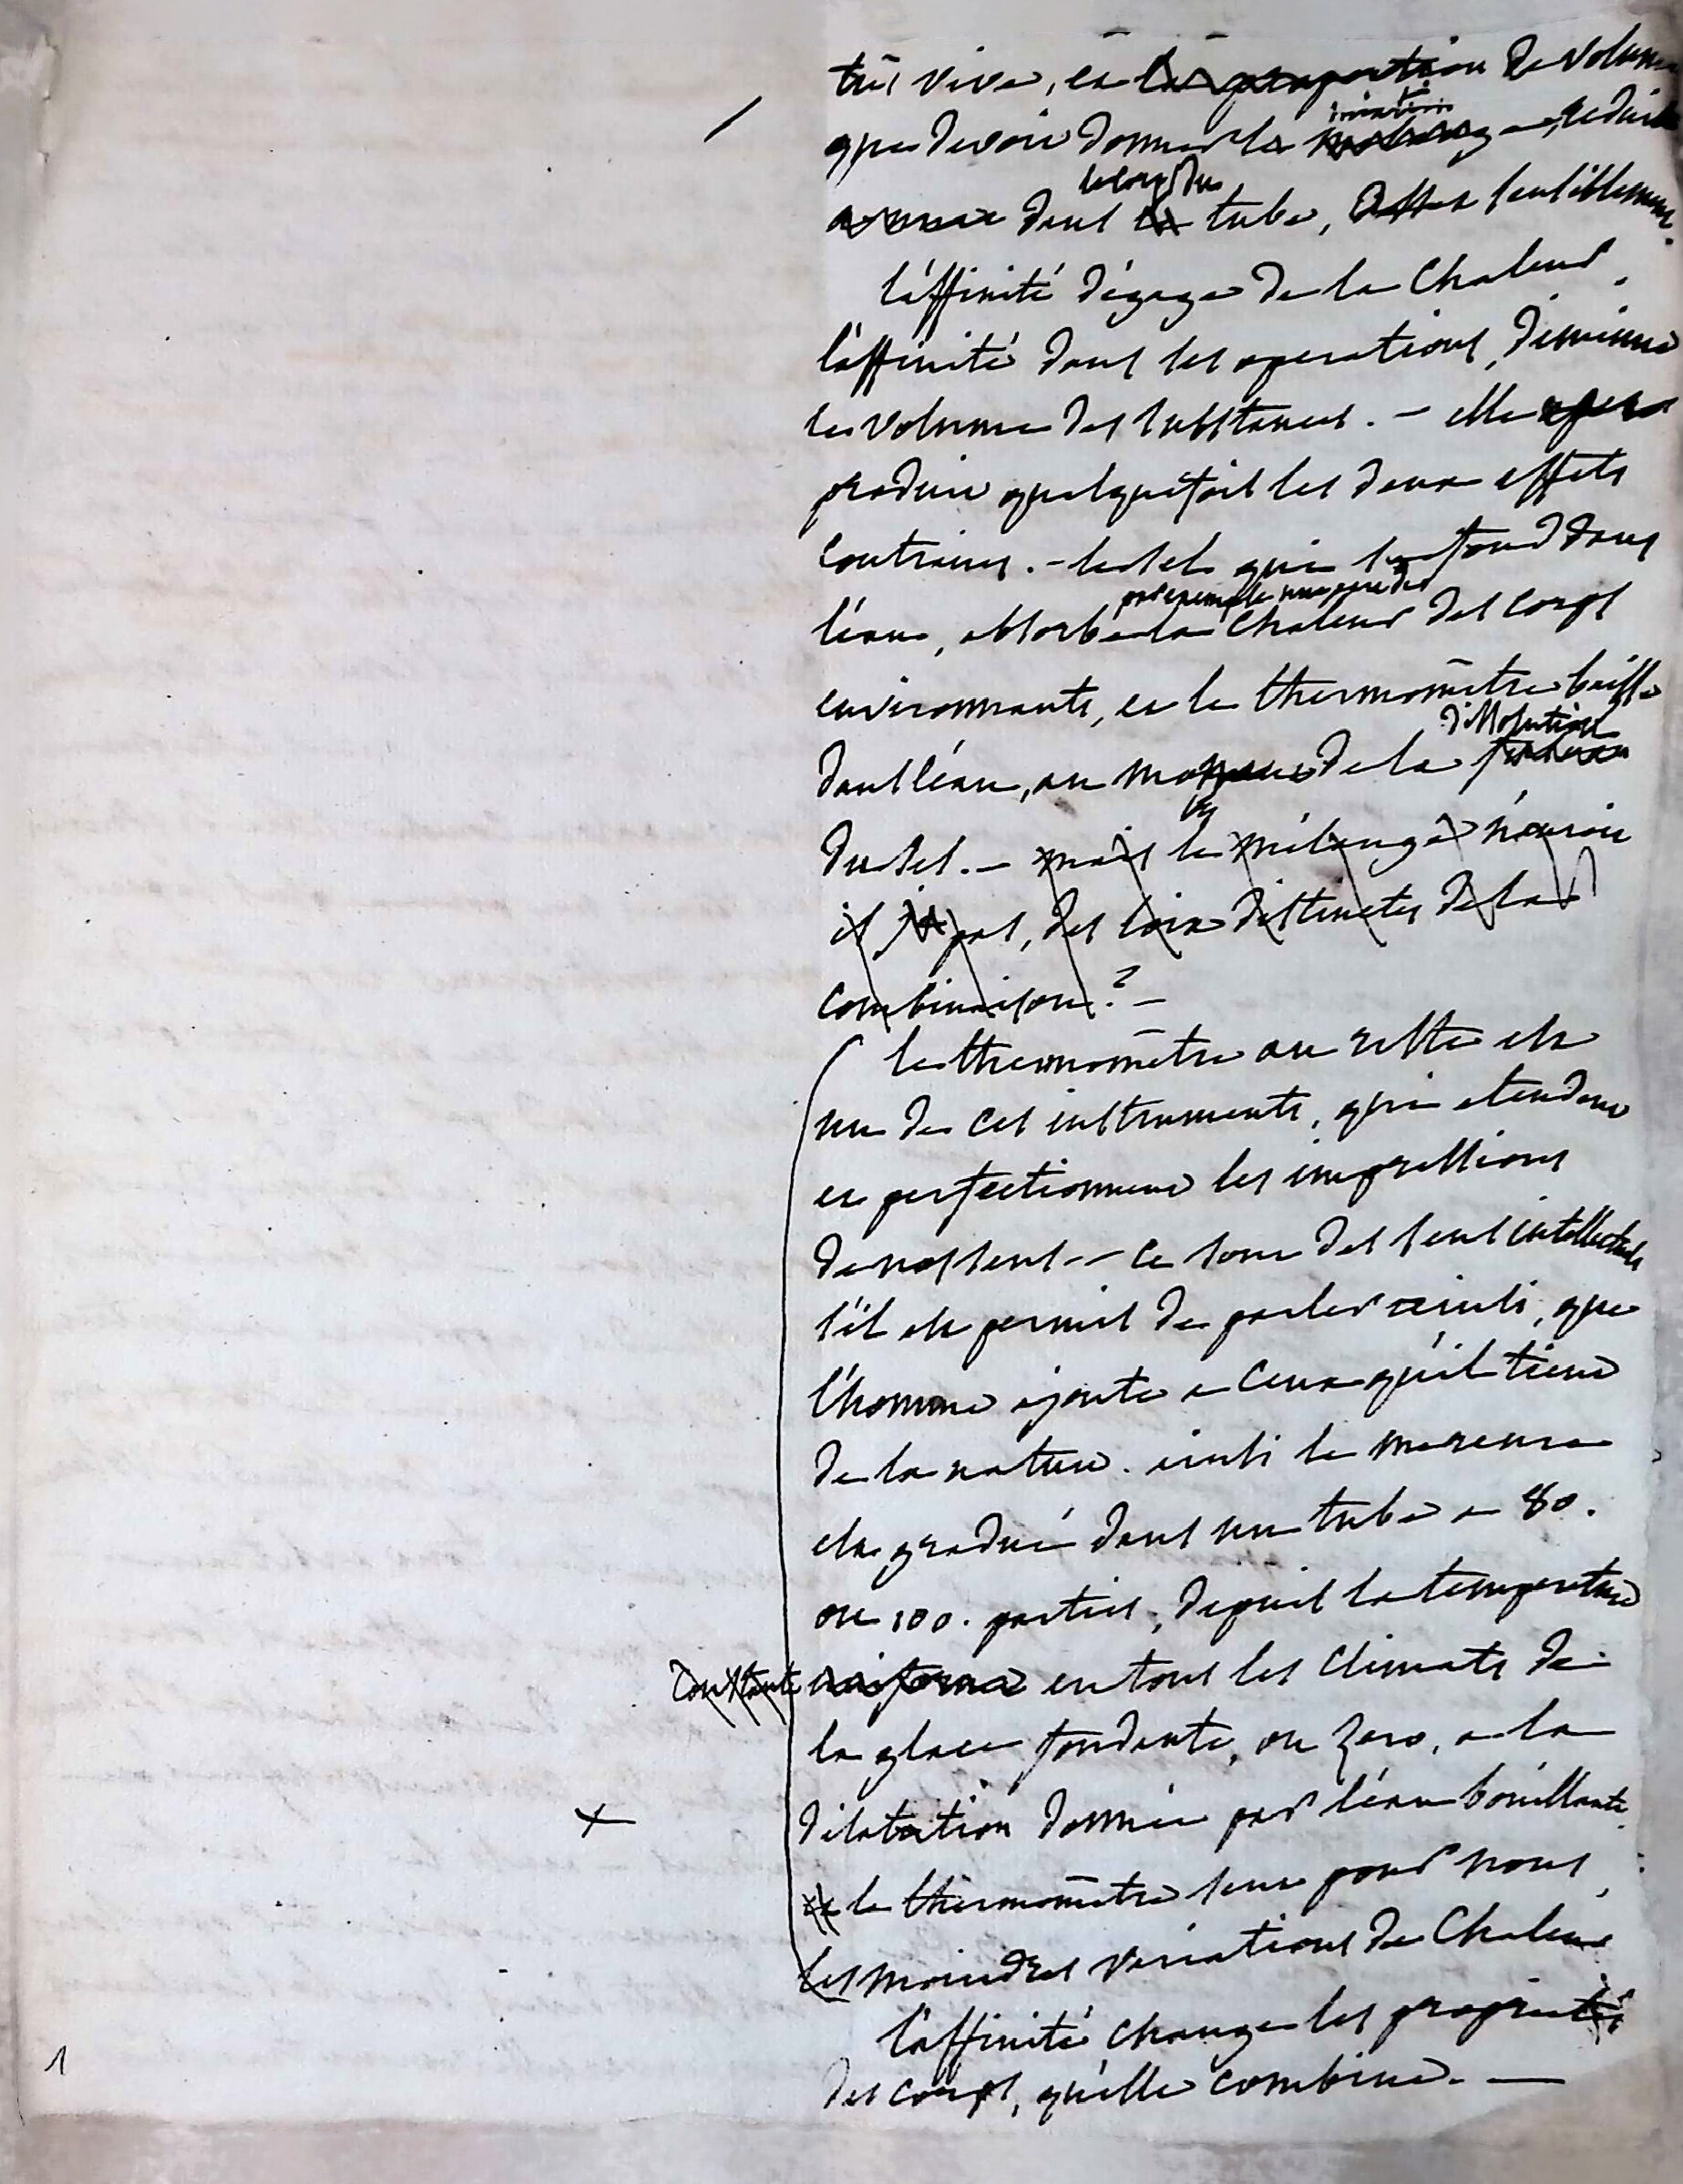 très vive, et la proportion de volume
que devoit donner le mélange, réduite
le corps du
dans tube, assez sensiblement.
l'affinité dégage de la Chaleur,
l'affinité dans les operations, diminue
le volume des substances. - elle opere
produit quelquefois les deux effets
contraires. - le sel qui se fond dans
par exemple une partie de
l'eau, absorbe la Chaleur des corps
environnants, et le thermomètre baisse
dissolution
dans l'eau, au moment de la fusion
du sel. - mais le mélange n'auroit
il pas, des loix distinctes de la
combinaison ? -
le thermomètre au reste est
un de ces instruments, qui etendent
et perfectionnent les impressions
de nos sens - ce sont des sens intellectuels
s'il est permis de parler ainsi, que
l'homme ajoute a ceux qu'il tient
de la nature. ainsi le mercure
est gradué dans un tube a 80.
ou 100. parties, depuis la temperature
constante uniforme en tous les climats de
la glace fondante, ou zero, a la
+ dilatation donnée par l'eau bouillante.
et le thermomètre sent pour nous,
les moindres variations de Chaleur
l'affinité change les propriétés
des corps, qu'elle combine. -
1